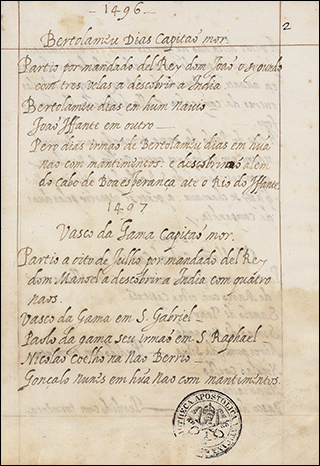 1496.
2
Bertolameu Dias Capitaõ mor.
Partio por mandado del Rey dom Joaõ o segundo
com tres velas a descobrir a India
Bertolameu dias em hum navio
Joaõ Iffante em outro
Pero dias irmaõ de Bertolameu dias em hũa
nao com mantimentos. e descobriraõ alem
do Cabo de Boa esperança ate o Rio do Iffante.
1497
Vasco da Gama Capitaõ mor.
Partio a oito de Julho por mandado del Rey
dom Manoel a descobrir a India com quatro
naos.
Vasco da Gama em S. Gabriel
Paulo da gama seu irmaõ em S. Raphael
Nicolao Coelho na Nao Berrio
Gonçalo Nunes em hũa Nao com mantimentos.
APOSTOLICA